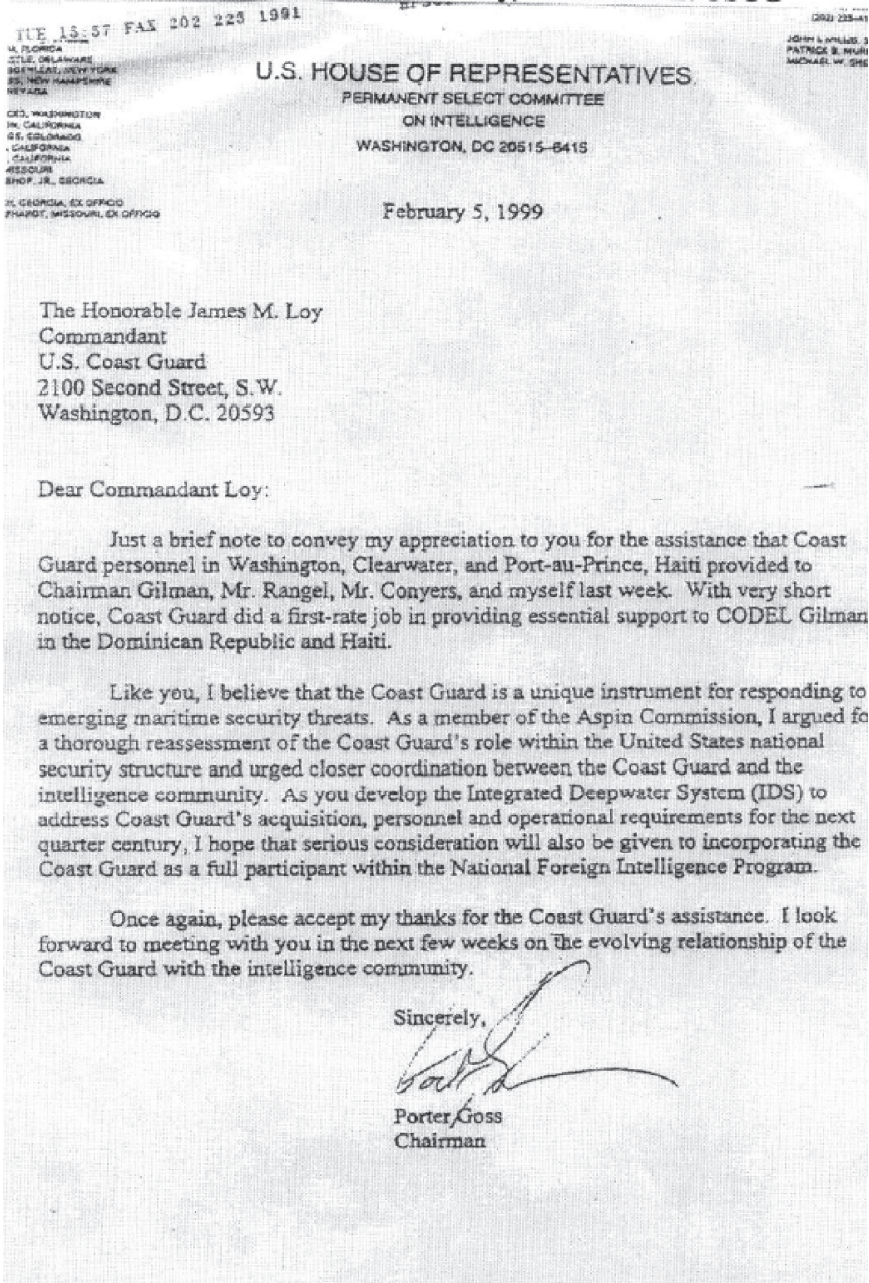 TUE 15:57 FAX 202 225 1991
FLORIDA
DELAWARE
NEW YORK
NEW HAMPSHIRE
NEVADA
WASHINGTON
CALIFORNIA
COLORADO
CALIFORNIA
CALIFORNIA
MISSOURI
JR., GEORGIA
GEORGIA, EX OFFICIO
MISSOURI, EX OFFICIO
(202) 225-41
JOHN
PATRICK B.
MICHAEL W.
U.S. HOUSE OF REPRESENTATIVES
PERMANENT SELECT COMMITTEE
ON INTELLIGENCE
WASHINGTON, DC 20515–6415
February 5, 1999
The Honorable James M. Loy
Commandant
U.S. Coast Guard
2100 Second Street, S.W.
Washington, D.C. 20593
Dear Commandant Loy:
Just a brief note to convey my appreciation to you for the assistance that Coast
Guard personnel in Washington, Clearwater, and Port-au-Prince, Haiti provided to
Chairman Gilman, Mr. Rangel, Mr. Conyers, and myself last week. With very short
notice, Coast Guard did a first-rate job in providing essential support to CODEL Gilman
in the Dominican Republic and Haiti.
Like you, I believe that the Coast Guard is a unique instrument for responding to
emerging maritime security threats. As a member of the Aspin Commission, I argued fo
a thorough reassessment of the Coast Guard's role within the United States national
security structure and urged closer coordination between the Coast Guard and the
intelligence community. As you develop the Integrated Deepwater System (IDS) to
address Coast Guard's acquisition, personnel and operational requirements for the next
quarter century, I hope that serious consideration will also be given to incorporating the
Coast Guard as a full participant within the National Foreign Intelligence Program.
Once again, please accept my thanks for the Coast Guard's assistance. I look
forward to meeting with you in the next few weeks on the evolving relationship of the
Coast Guard with the intelligence community.
Sincerely,
Porter Goss
Chairman